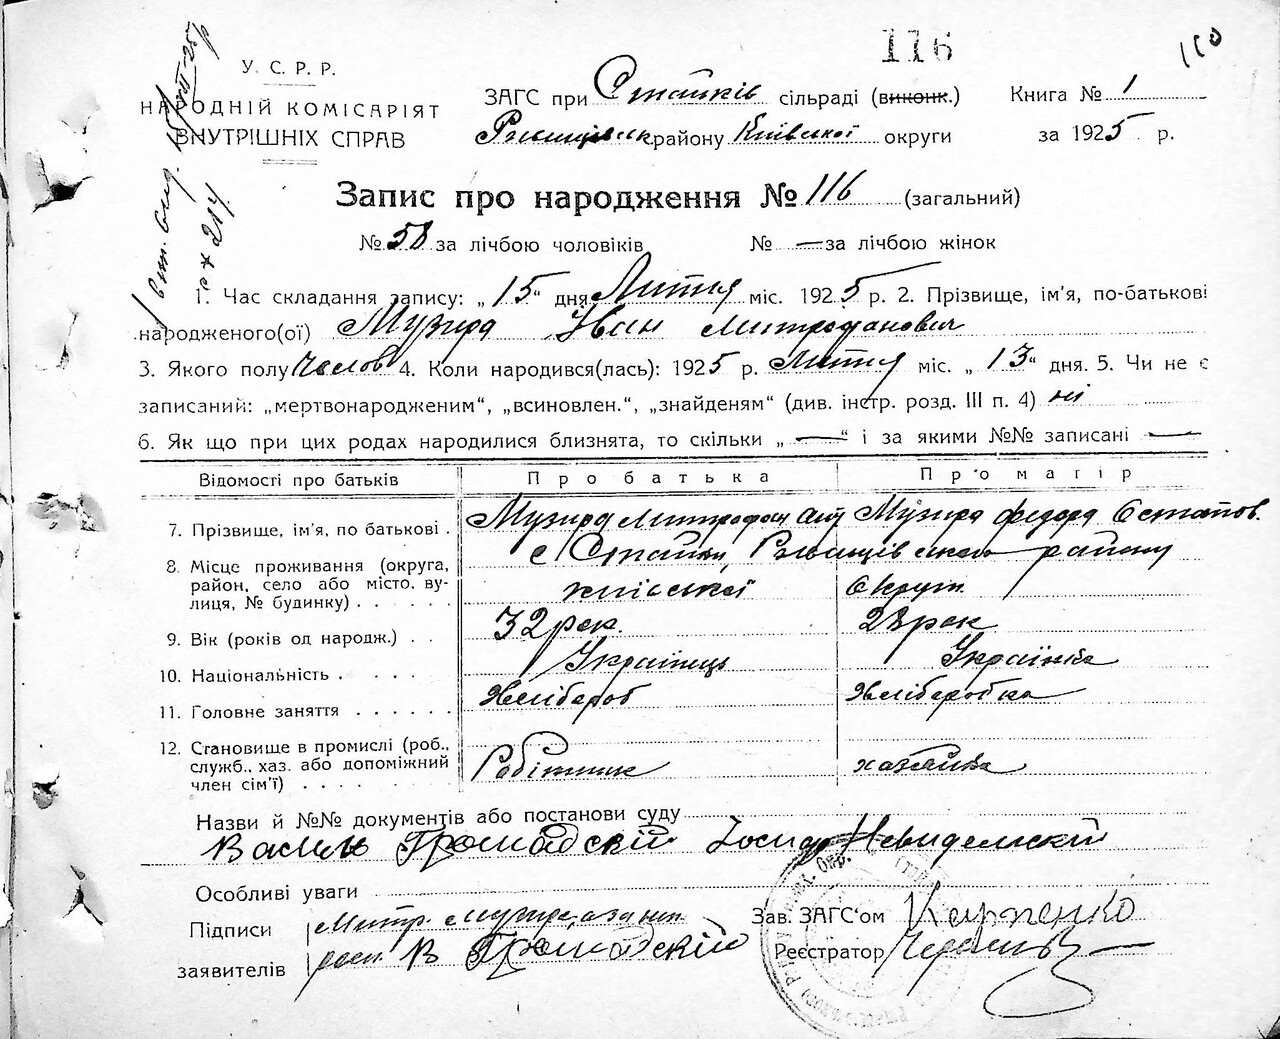 116
110
У. С. Р. Р.
НАРОДНІЙ КОМІСАРІЯТ
ВНУТРІШНІХ СПРАВ
ЗАГС при Стайків сільраді (виконк.)
району Київської округи
Книга № 1
за 1925 р.
Запис про народження № 116 (загальний)
№ 58 за лічбою чоловіків № — за лічбою жінок
1. Час складання запису: „15“ дня Лютня міс. 1925 р. 2. Прізвище, ім'я, по-батькові
народженого(ої) Музира Іван Митрофанович
3. Якого полу Челов 4. Коли народився(лась): 1925 р. Лютня міс. „13“ дня. 5. Чи не є
записаний: „мертвонародженим“, „всиновлен.“, „знайденям“ (див. інстр. розд. III п. 4) ні
6. Як що при цих родах народилися близнята, то скільки „—“ і за якими №№ записані —
Відомості про батьків Про батька Про матір
7. Прізвище, ім'я, по батькові . Музира Митрофан Музира Федора Остапов.
8. Місце проживання (округа, с Стайки, району
район, село або місто, ву-
лиця, № будинку) . . . . . київської округ.
9. Вік (років од народж.) . . 32 рок. 28 рок
10. Національність . . . . . Українець Українка
11. Головне заняття . . . . . Хлібороб Хліборобка
12. Становище в промислі (роб.,
служб., хаз. або допоміжний Робітник хазяйка
член сім'ї) . . . . . . .
Назви й №№ документів або постанови суду
Василь Громадскій Іосип Невидемскій
Особливі уваги
Підписи Митр. Музира
заявителів В Громадскій
Зав. ЗАГС'ом Карпенко
Реєстратор